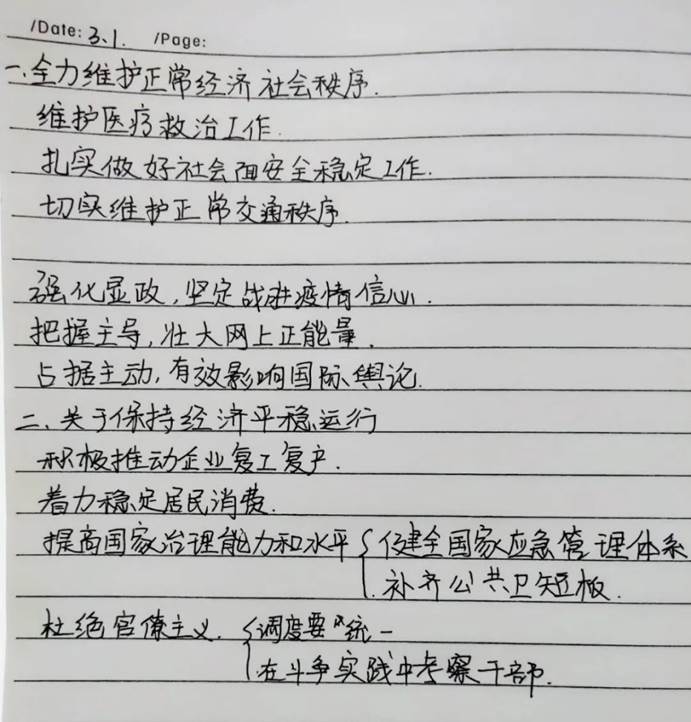 /Date: 3.1. /Page:
一.全力维护正常经济社会秩序.
维护医疗救治工作.
扎实做好社会面安全稳定工作.
切实维护正常交通秩序.
强化显政,坚定战胜疫情信心.
把握主导,壮大网上正能量.
占据主动,有效影响国际舆论.
二、关于保持经济平稳运行
积极推动企业复工复产.
着力稳定居民消费.
提高国家治理能力和水平 { 健全国家应急管理体系
补齐公共卫短板.
杜绝官僚主义. { 调度要"统一
在斗争实践中考察干部.